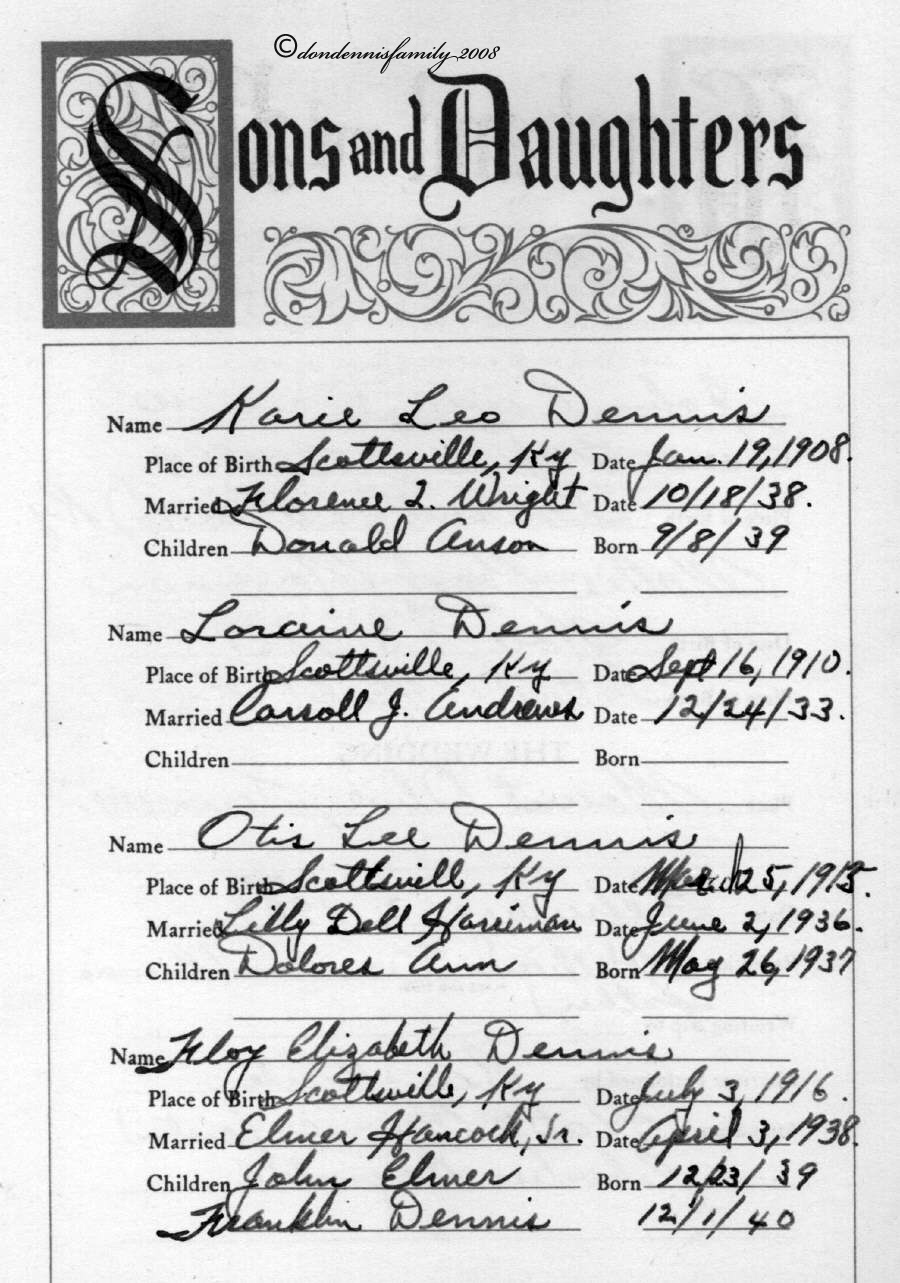 ©dondennisfamily 2008
Sons and Daughters
Name Karie Leo Dennis
Place of Birth Scottsville, Ky Date Jan. 19, 1908.
Married Florence I. Wright Date 10/18/38.
Children Donald Anson Born 9/8/39
Name Loraine Dennis
Place of Birth Scottsville, Ky Date Sept 16, 1910.
Married Carroll J. Andrews Date 12/24/33.
Children Born
Name Otis Lee Dennis
Place of Birth Scottsvill, Ky Date March 25, 1913.
Married Lilly Dell Harriman Date June 2, 1936.
Children Dolores Ann Born May 26, 1937
Name Floy Elizabeth Dennis
Place of Birth Scottsville, Ky Date July 3, 1916.
Married Elmer Hancock, Jr. Date April 3, 1938.
Children John Elmer Born 12/23/39
Franklin Dennis 12/1/40